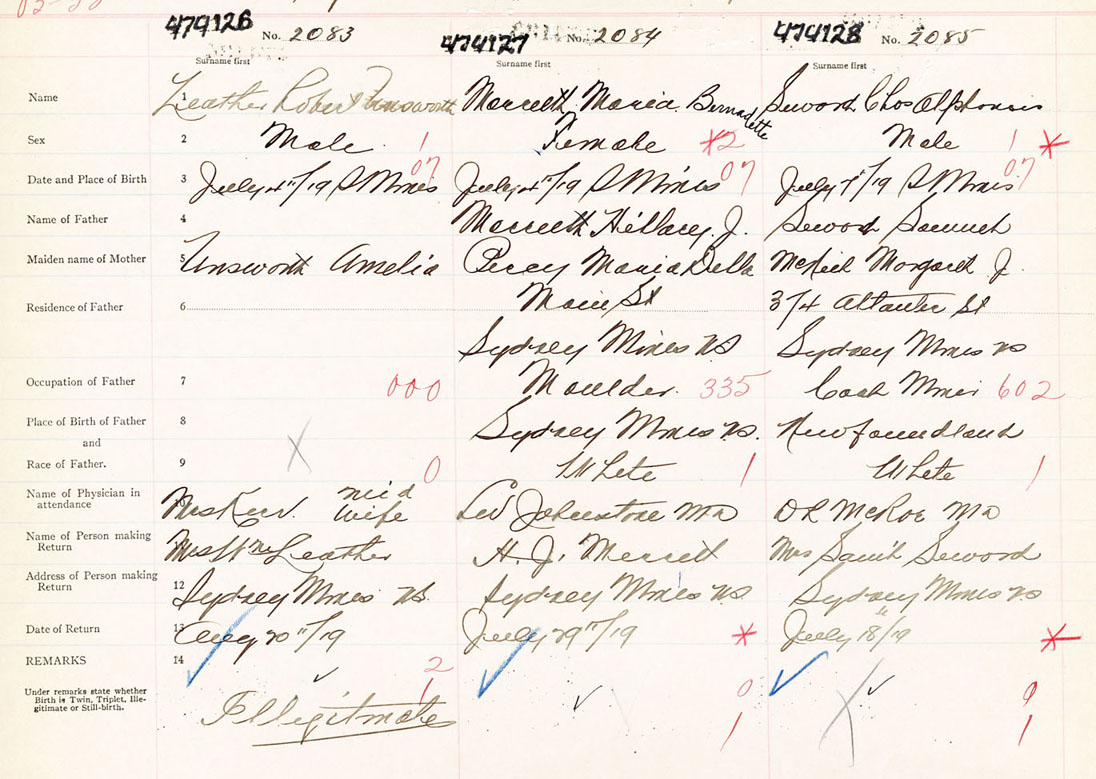 474126 No. 2083 474127 No. 2084 474128 No. 2085
Surname first Surname first Surname first
Name 1 Leather Robert Unsworth Merreth Maria Bernadette Seword Chas Alphonsis
Sex 2 Male 1 Female *2 Male 1 *
Date and Place of Birth 3 July 4"/19 S Mines 07 July 4"/19 S Mines 07 July 7"/19 S Mines 07
Name of Father 4 Merreth Hillarey. J. Seword Samuel
Maiden name of Mother 5 Unsworth Amelia Percy Maria Della Margaret J.
Residence of Father 6 Main St 374 Atlantic St
Sydney Mines NS Sydney Mines NS
Occupation of Father 7 000 Moulder. 335 Coal Miner 602
Place of Birth of Father 8 Sydney Mines NS. Newfoundland
and
Race of Father. 9 0 White 1 White 1
Name of Physician in
attendance 10 Mrs Kerr. mid wife Johnstone MD McRae MD
Name of Person making
Return Mrs Wm Leather H. J. Merrett Mrs Saml Seword
Address of Person making
Return 12 Sydney Mines NS. Sydney Mines NS Sydney Mines NS
Date of Return 13 Aug 20"/19 July 29"/19 * July 18"/19 *
REMARKS 14 2
Under remarks state whether
Birth is Twin, Triplet, Ille-
gitimate or Still-birth. 1 Illegitmate 0 1 1